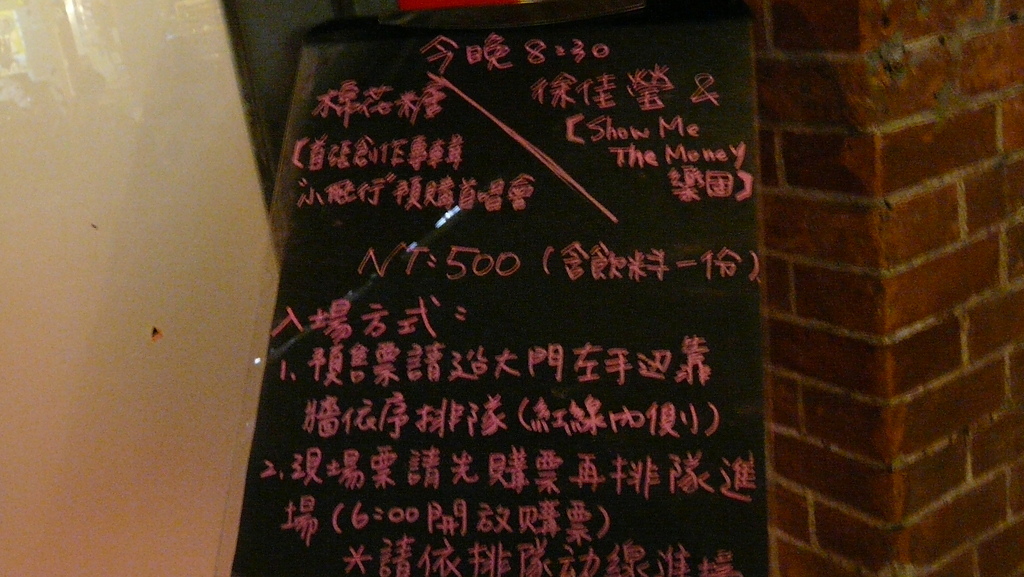 今晚 8:30
棉花糖
【首張創作專輯
"小飛行"預購首唱會
徐佳瑩 &
【Show Me
The Money
樂團】
NT:500 (含飲料一份)
入場方式:
1. 預售票請沿大門左手边靠
牆依序排隊(紅線內側)
2. 現場票請先購票再排隊進
場 (6:00開放購票)
*請依排隊动線進場